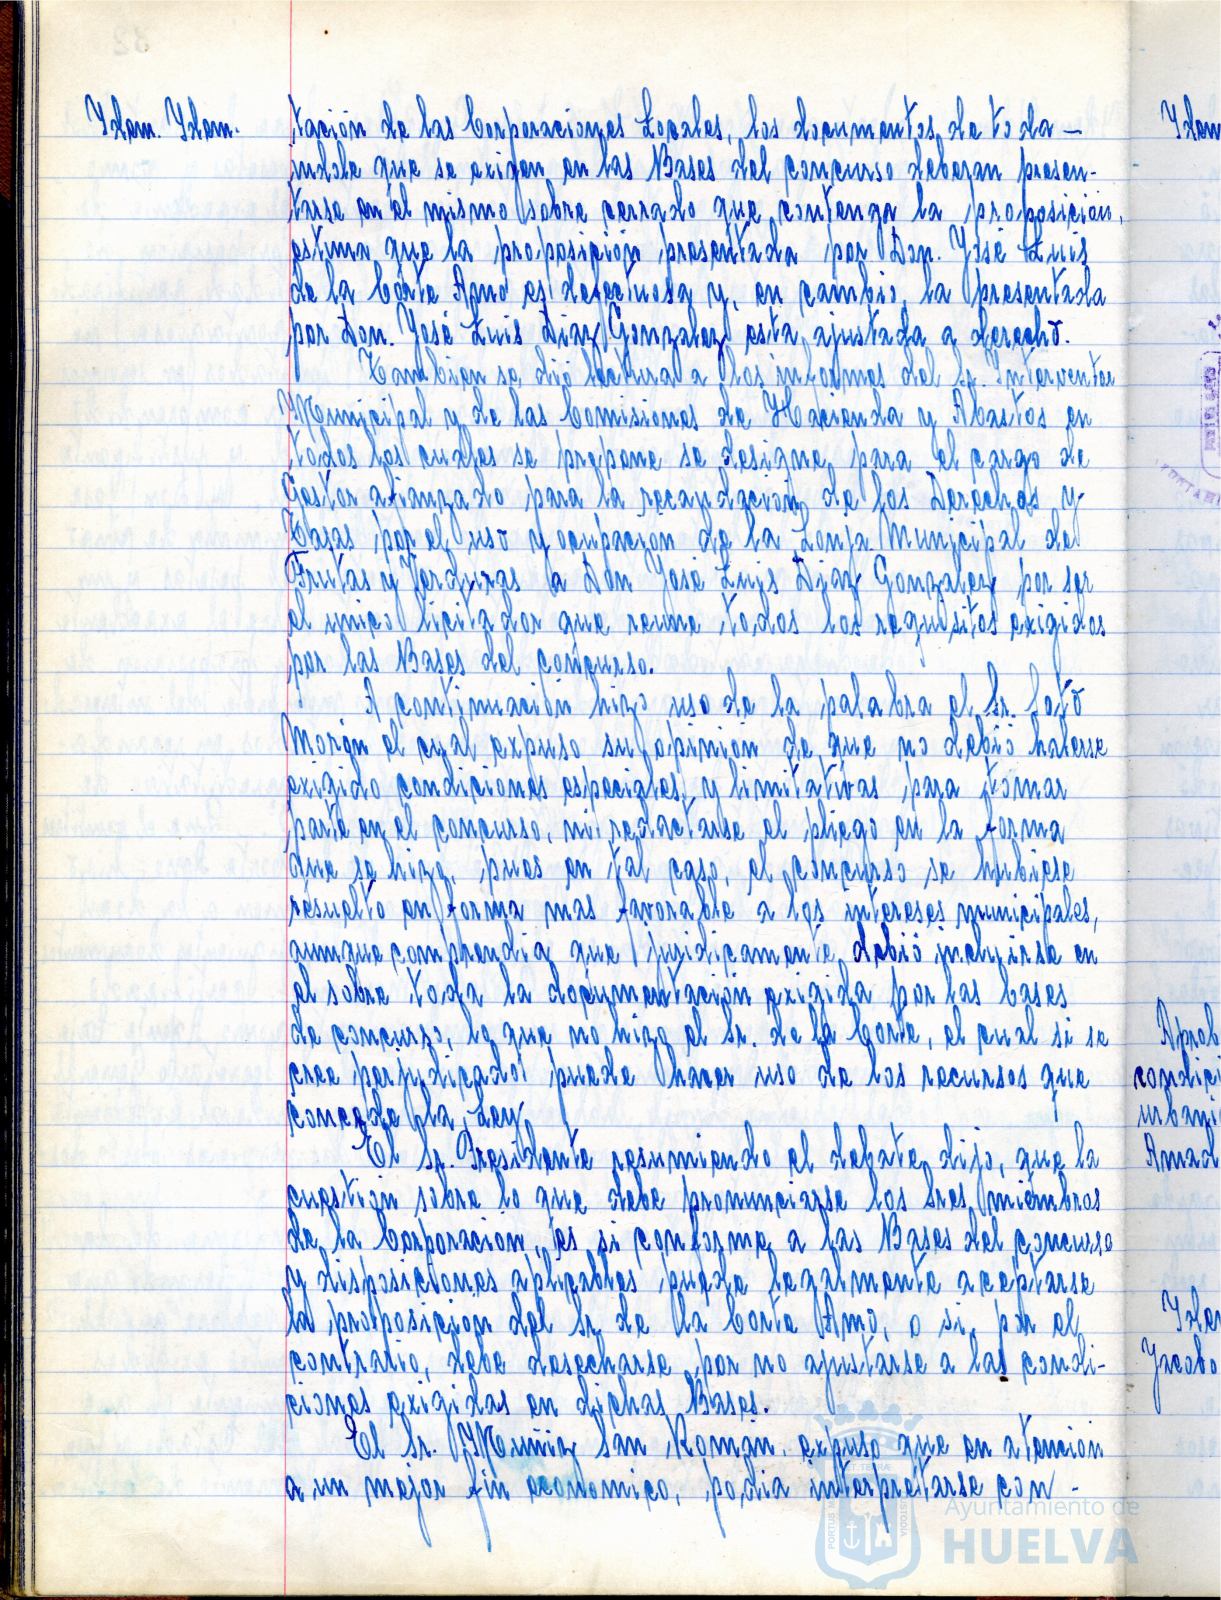 Idem. Idem.
tación de las Corporaciones Locales, los documentos de toda —
indole que se exigen en las Bases del concurso deberan presen-
tarse en el mismo sobre cerrado que contenga la proposición,
estima que la proposición presentada por Don. José Luis
de la Corte Amo es defectuosa y, en cambio, la presentada
por Don. José Luis Diaz Gonzalez esta ajustada a derecho.
Tambien se dió lectura a los informes del Sr. Interventor
Municipal y de las Comisiones de Hacienda y Abastos en
todos los cuales se propone se designe para el cargo de
Gestor afianzado para la recaudación de los Derechos y
Tasas por el uso y ocupacion de la Lonja Municipal de
Frutas y Verduras a Don José Luis Diaz Gonzalez por ser
el unico licitador que reune todos los requisitos exigidos
por las Bases del concurso.
A continuación hizo uso de la palabra el Sr. Soto
Morón el cual expuso su opinión de que no debió haberse
exigido condiciones especiales y limitativas para tomar
parte en el concurso, ni redactarse el pliego en la forma
que se hizo, pues en tal caso, el concurso se hubiese
resuelto en forma mas favorable a los intereses municipales,
aunque comprendia que juridicamente debió incluirse en
el sobre toda la documentación exigida por las bases
de concurso, lo que no hizo el Sr. de la Corte, el cual si se
cree perjudicado puede hacer uso de los recursos que
concede la Ley.
El Sr. Presidente resumiendo el debate dijo, que la
cuestión sobre lo que debe pronunciarse los Sres miembros
de la Corporación, es si conforme a las Bases del concurso
y disposiciones aplicables puede legalmente aceptarse
la proposición del Sr de la Corte Amo, o si, por el
contrario, debe desecharse por no ajustarse a las condi-
ciones exigidas en dichas Bases.
El Sr. Muñiz San Roman, expuso que en atención
a un mejor fin economico, podia interpretarse con -
Idem
Aprob
condici
urbani
Amad
Iden
Jacobo
Ayuntamiento de
HUELVA